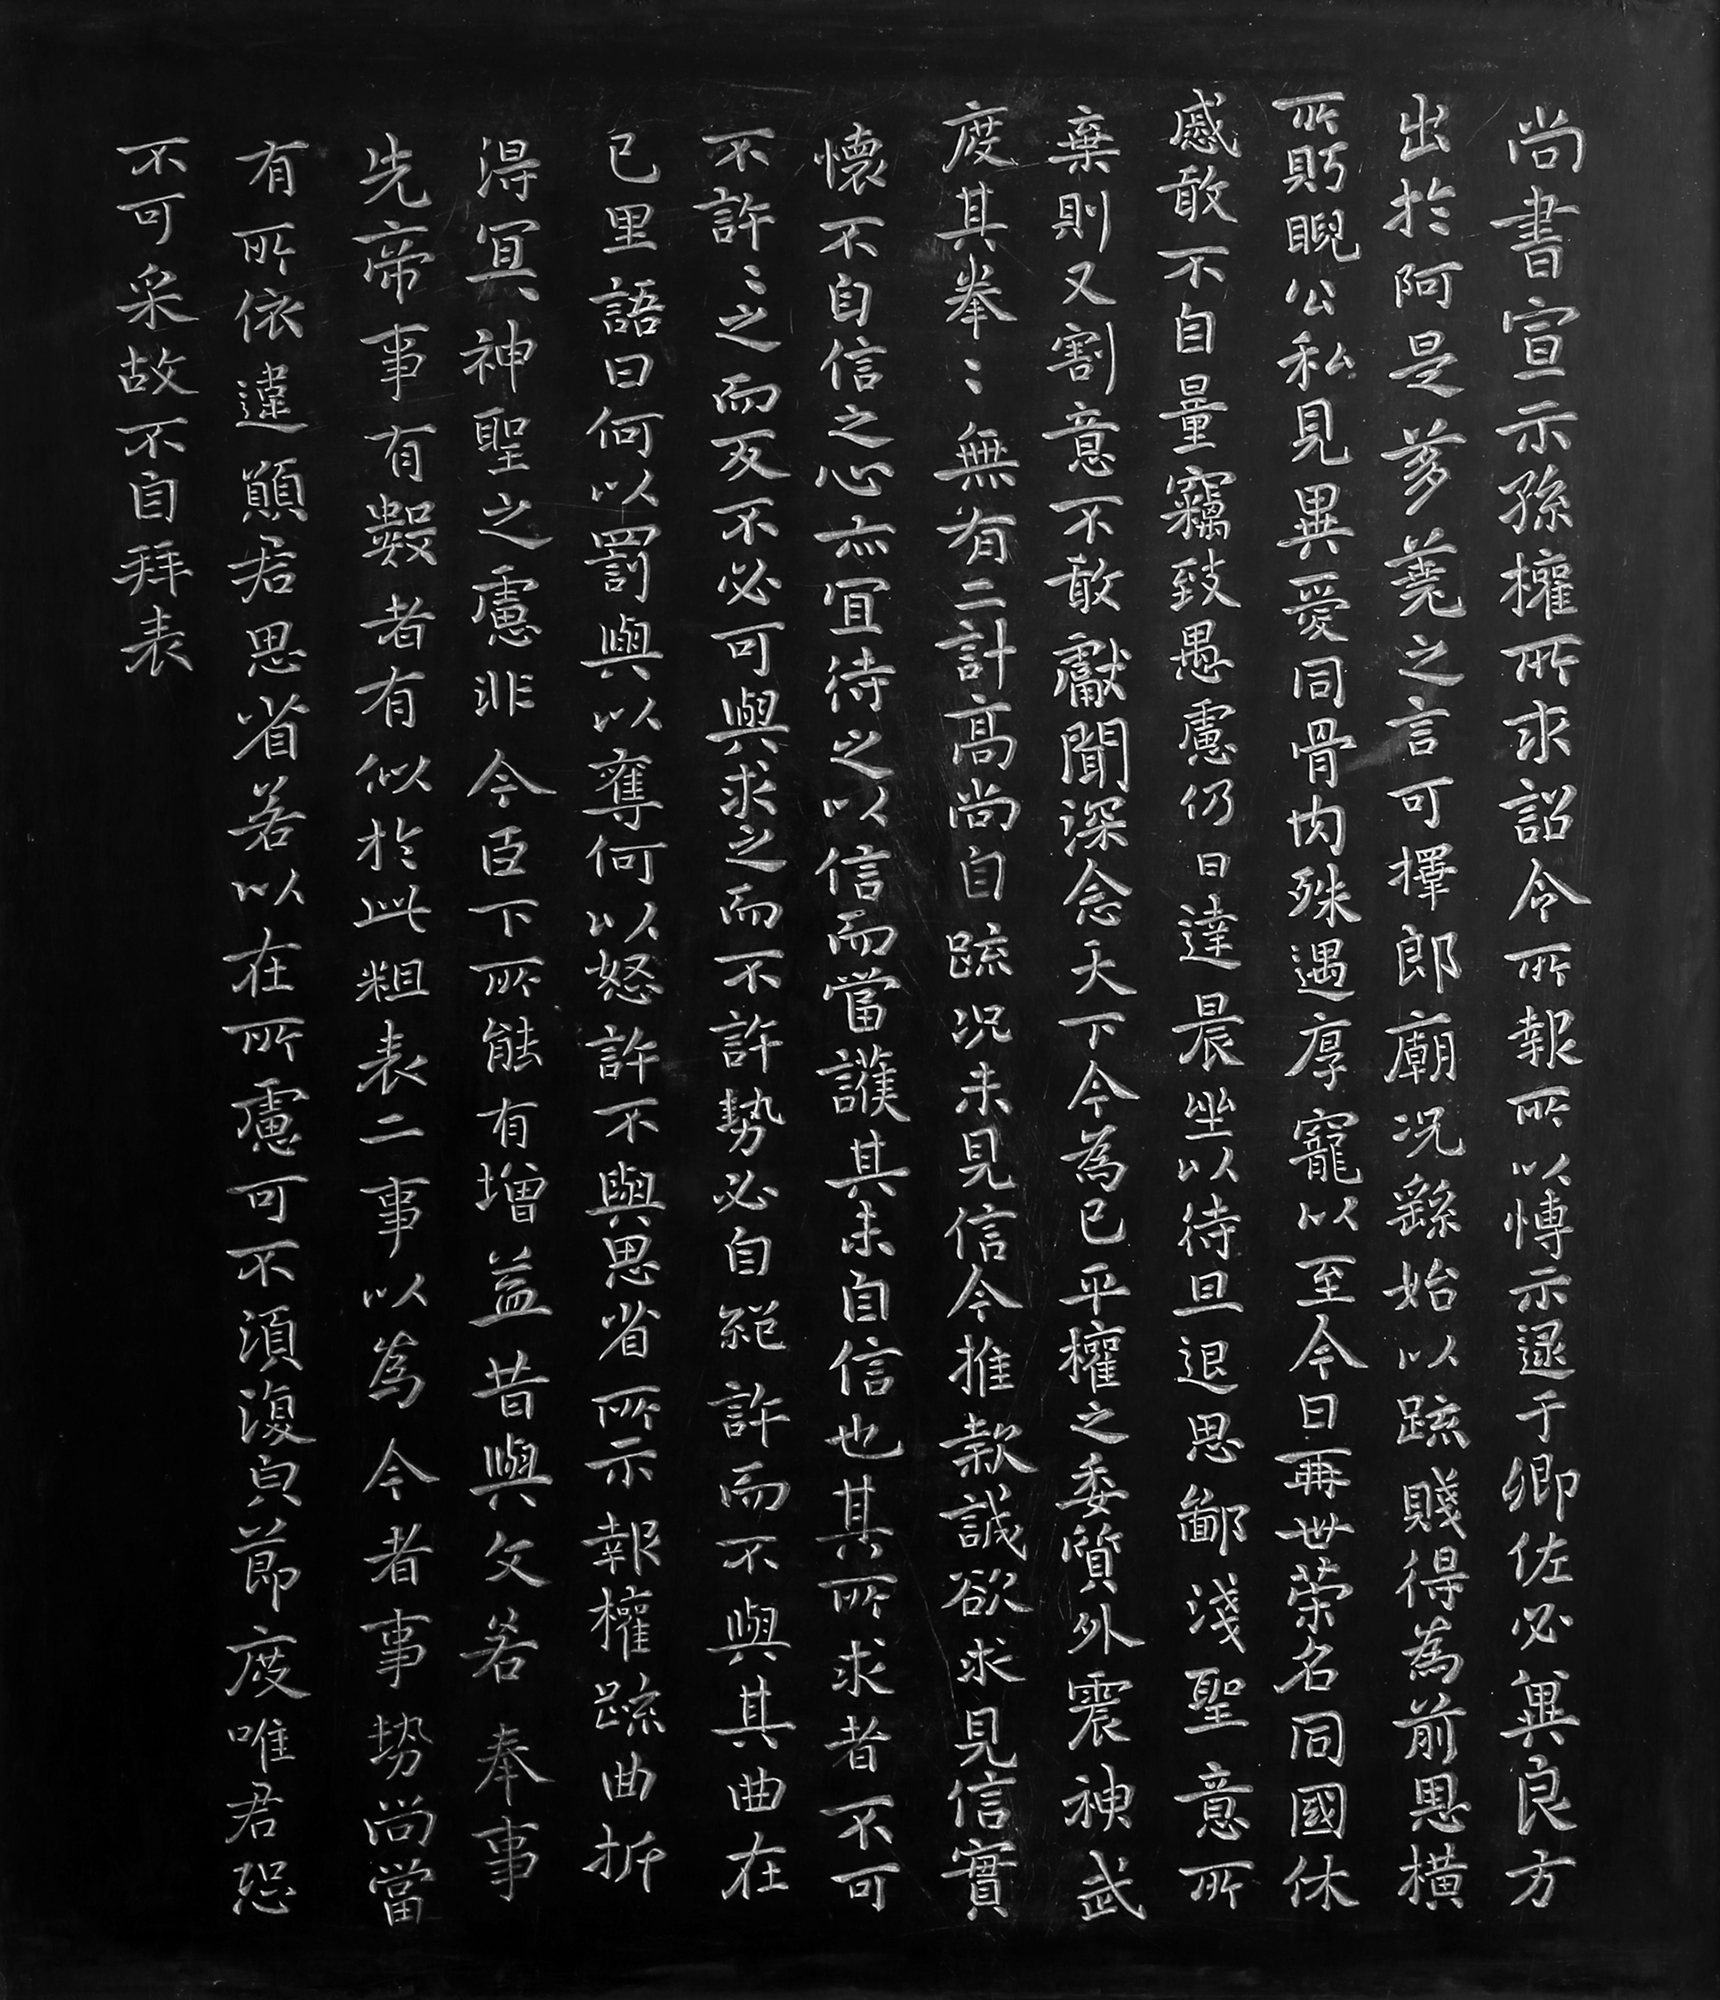 尚書宣示孫權所求詔令所報所以愽示逮于卿佐必冀良方
出於阿是芻蕘之言可擇郎廟況繇始以疏賤得為前恩橫
所眄睨公私見異愛同骨肉殊遇厚寵以至今日再世榮名同國休
慼敢不自量竊致愚慮仍日達晨坐以待旦退思鄙淺聖意所
棄則又割意不敢獻聞深念天下今為已平權之委質外震神武
度其拳〻無有二計高尚自疏況未見信今推款誠欲求見信實
懷不自信之心亦宜待之以信而當護其未自信也其所求者不可
不許〻之而反不必可與求之而不許勢必自絕許而不與其曲在
己里語曰何以罰與以奪何以怒許不與思省所示報權疏曲折
得宜神聖之慮非今臣下所能有增益昔與文若奉事
先帝事有數者有似於此粗表二事以為今者事勢尚當
有所依違願君思省若以在所慮可不須復皃節度唯君恐
不可采故不自拜表